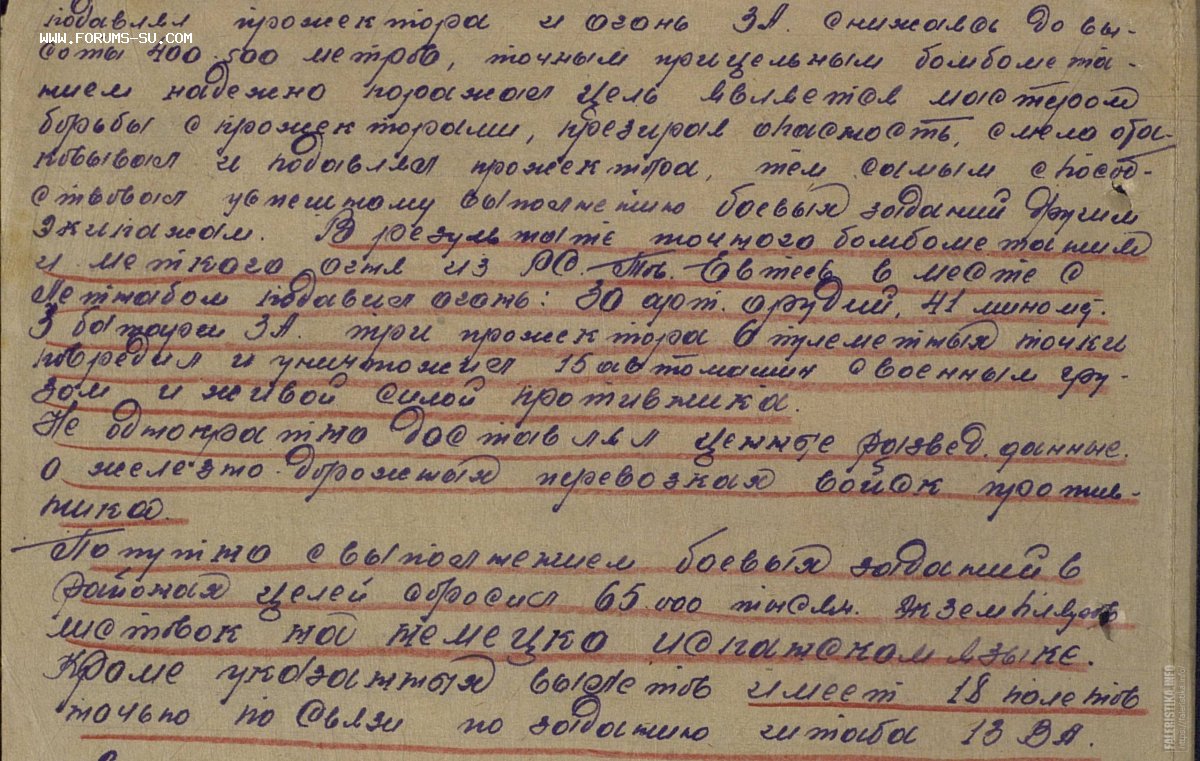 подавлял прожектора и огонь ЗА. снижаясь до вы-
WWW.FORUMS-SU.COM
соты 400-500 метров, точным прицельным бомбомета-
нием надежно поражал цель является мастером
борьбы с прожекторами, презирая опасность, смело ата-
ковывал и подавлял прожектора, тем самым способ-
ствовал успешному выполнению боевых заданий другим
экипажам. В результате точного бомбометания
и меткого огня из РС. Тов. Евтеев в месте с
Летнабом подавил огонь: 30 арт. орудий, 41 миномет.
3 батареи ЗА. три прожектора 6 пулеметных точки
повредил и уничтожил 15 автомашин с военным гру-
зом и живой силой противника.
Не однократно доставлял ценные развед. данные.
о железно-дорожных перевозках войск против-
ника.
Попутно с выполнением боевых заданий в
районах целей сбросил 65.000 тысяч. экземпляров
листовок на немецко испанском языке.
Кроме указанных вылетов имеет 18 полетов
ночью по связи по заданию штаба 13 ВА.
FALERISTIKA.INFO
https://faleristika.info